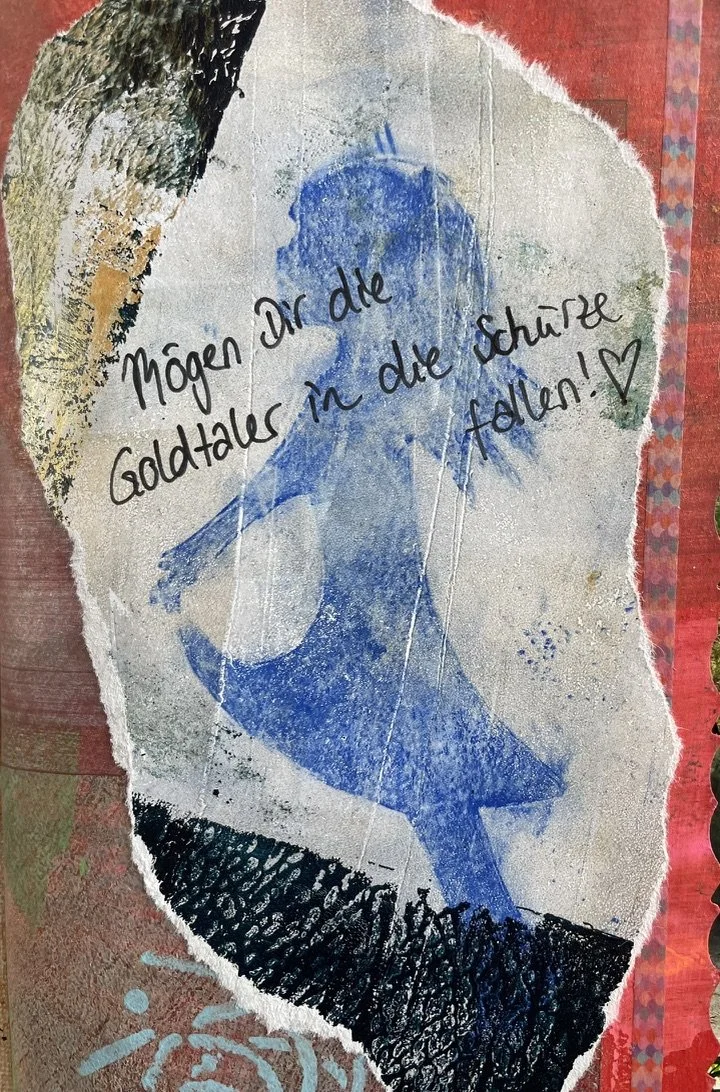 Mögen Dir die
Goldtaler in die Schürze
fallen! ♡